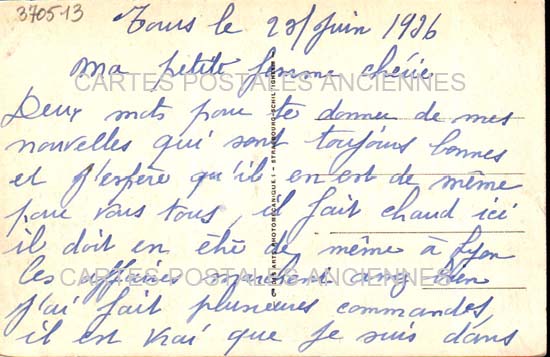 3705-13
Tours le 23 Juin 1926
Ma petite femme chérie
CARTES POSTALES ANCIENNES
Deux mots pour te donner de mes
nouvelles qui sont toujours bonnes
et j'espère qu'il en est de même
pour vous tous, il fait chaud ici
il doit en être de même à Lyon
les affaires marchent assez bien
CARTES POSTALES ANCIENNES
j'ai fait plusieures commandes,
il est vrai que je suis dans
PHOTOMECANIQUES - STRASBOURG-SCHILTIGHEIM